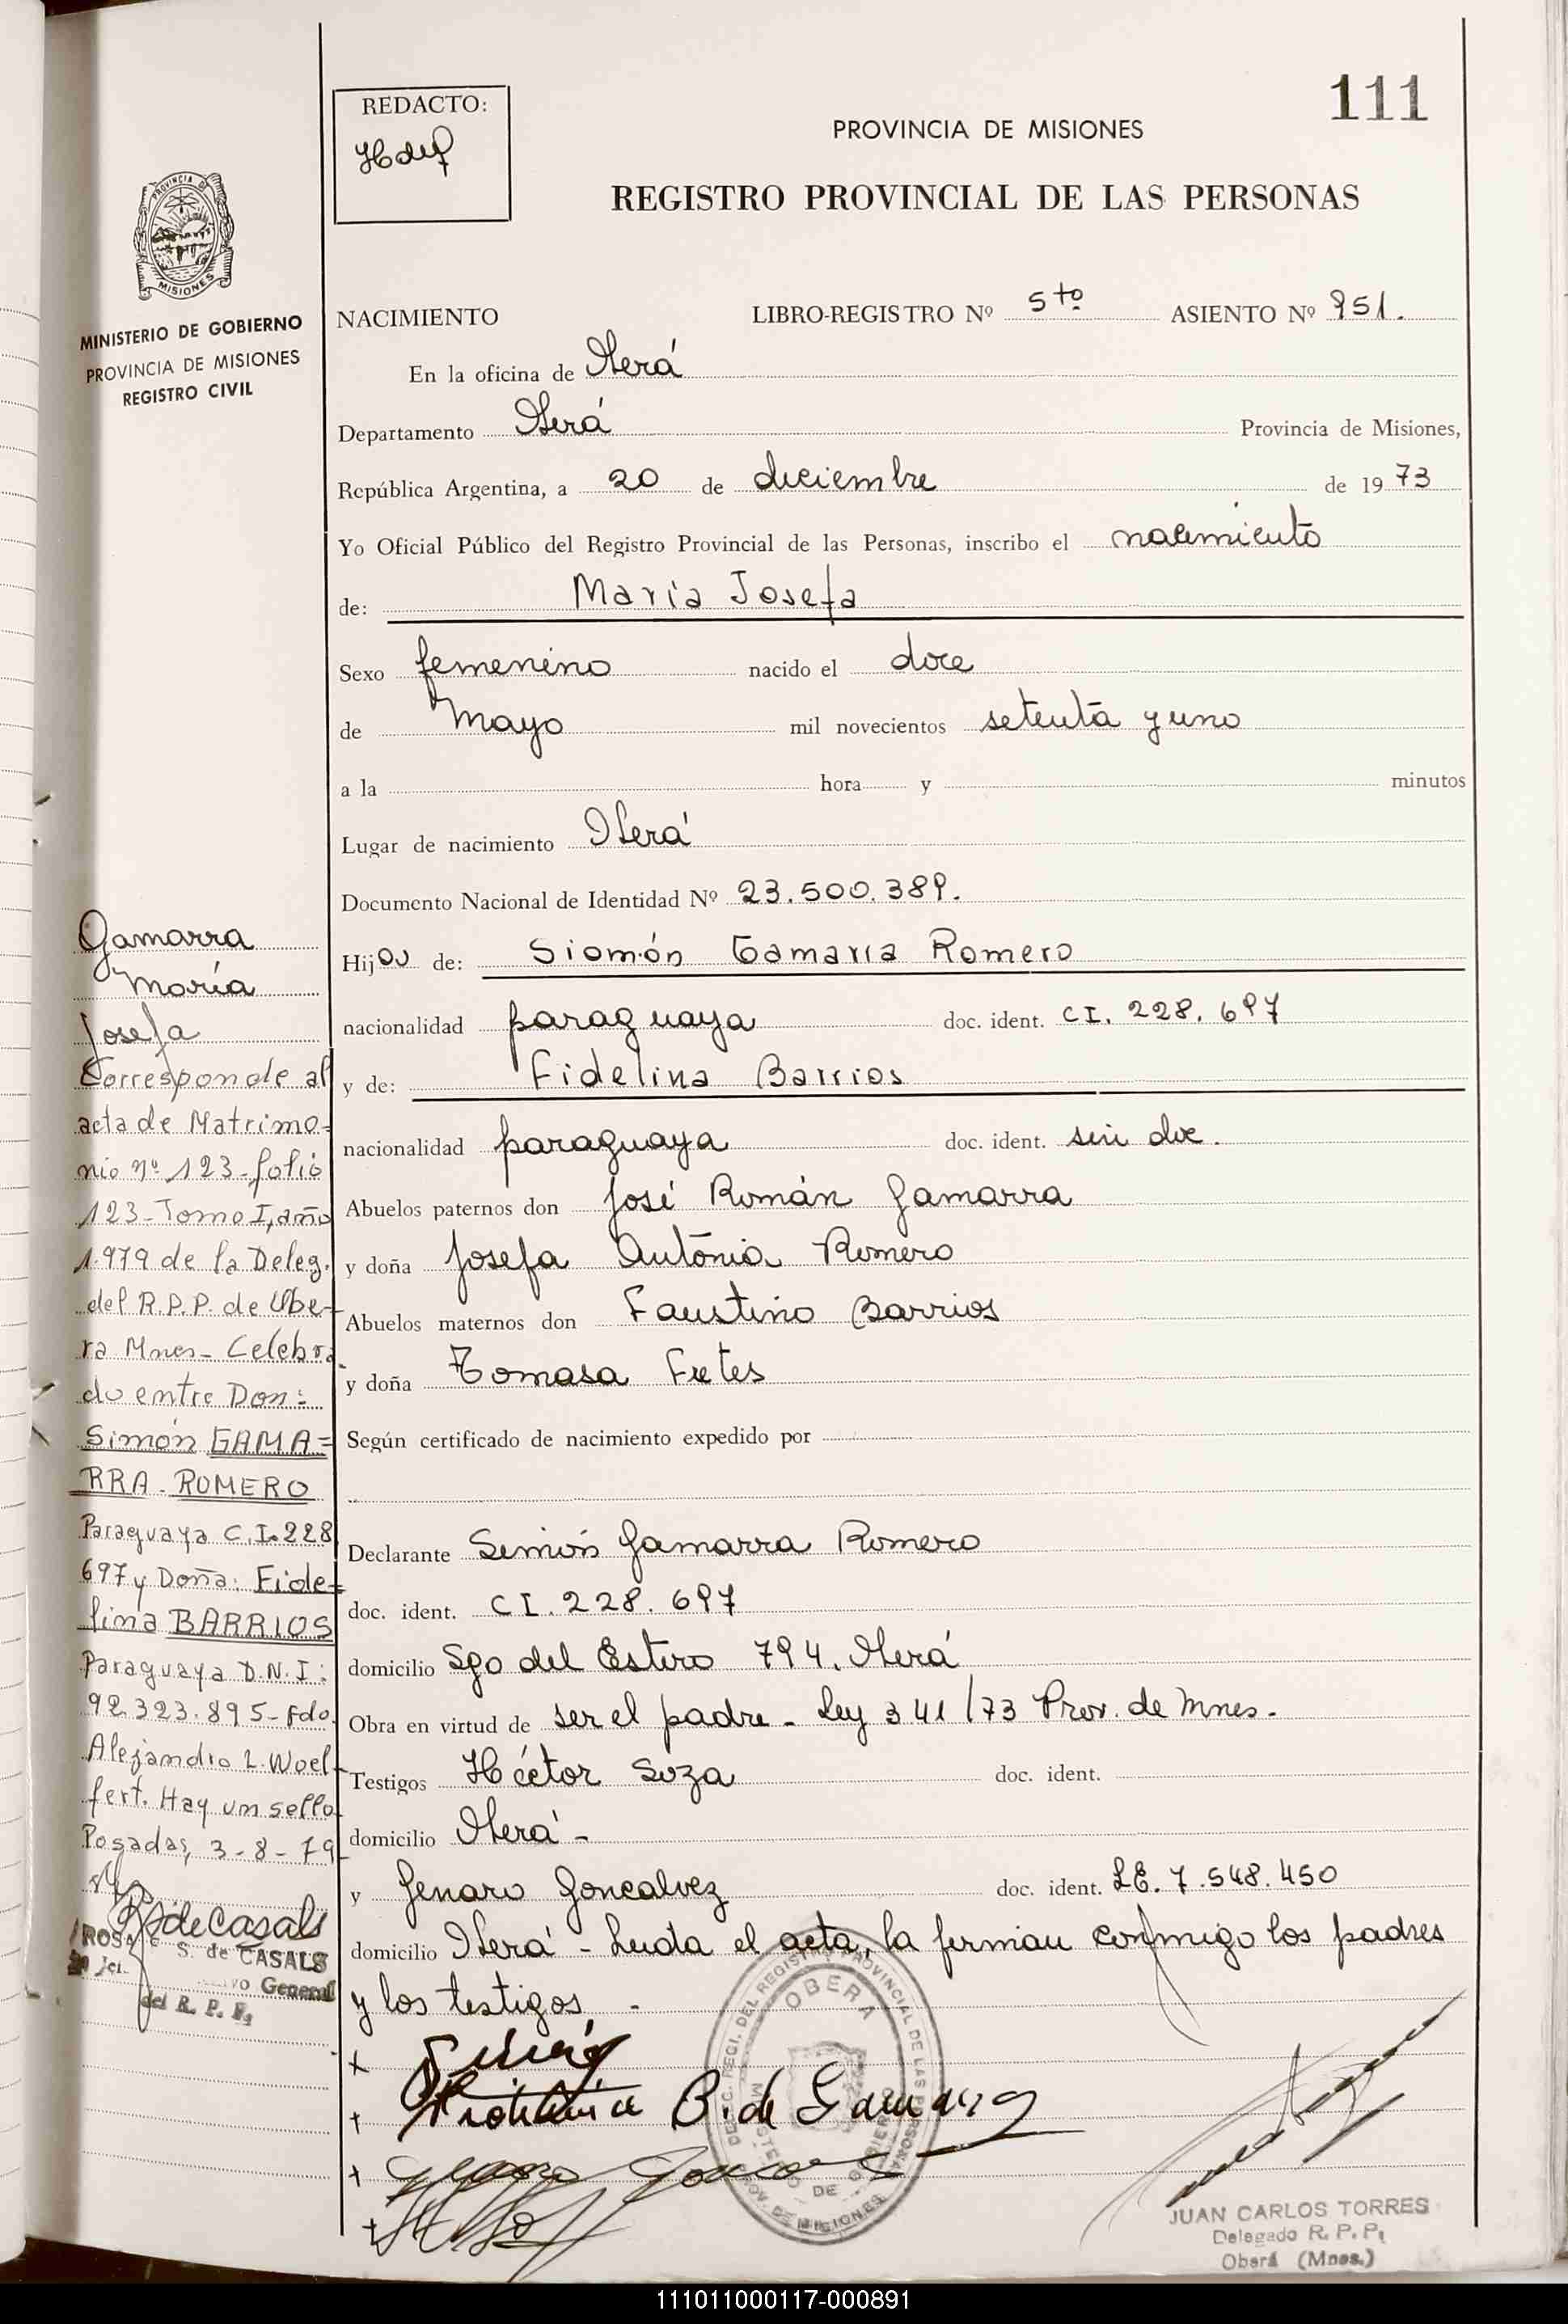 111
REDACTO:
PROVINCIA DE MISIONES
REGISTRO PROVINCIAL DE LAS PERSONAS
PROVINCIA DE
MISIONES
MINISTERIO DE GOBIERNO
PROVINCIA DE MISIONES
REGISTRO CIVIL
NACIMIENTO LIBRO-REGISTRO Nº 5to ASIENTO Nº 951.
En la oficina de Oberá
Departamento Oberá Provincia de Misiones,
República Argentina, a 20 de diciembre de 1973
Yo Oficial Público del Registro Provincial de las Personas, inscribo el nacimiento
de: María Josefa
Sexo femenino nacido el doce
de mayo mil novecientos setenta y uno
a la hora y minutos
Lugar de nacimiento Oberá
Documento Nacional de Identidad Nº 23.500.389.
Hija de: Siomón Gamarra Romero
nacionalidad paraguaya doc. ident. CI. 228.697
y de: Fidelina Barrios
nacionalidad paraguaya doc. ident. sin doc.
Abuelos paternos don José Román Gamarra
y doña Josefa Antonia Romero
Abuelos maternos don Faustino Barrios
y doña Tomasa Fretes
Según certificado de nacimiento expedido por
Declarante Simón Gamarra Romero
doc. ident. CI. 228.697
domicilio Sgo del Estero 794. Oberá
Obra en virtud de ser el padre - Ley 341/73 Prov. de Mnes.
Testigos Héctor Soza doc. ident.
domicilio Oberá -
y Genaro Goncalvez doc. ident. LE. 7.548.450
domicilio Oberá - Leida el acta, la firman conmigo los padres
y los testigos -
Gamarra
María
Josefa
Corresponde al
acta de Matrimo-
nio nº 123-folio
123-Tomo I, año
1.979 de la Deleg.
del R.P.P. de Obe-
ra Mnes- Celebra
do entre Don:
Simón GAMA=
RRA-ROMERO
Paraguaya C.I.228
697 y Doña: Fide=
lina BARRIOS
Paraguaya D.N.I:
92.323.895-Fdo.
Alejandro L. Woel-
fert. Hay un sello
Posadas, 3-8-79
R S de Casals
ROSA S. de CASALS
General
del R. P. P.
B. de Gamarra
OBERA
PROV. DE MISIONES
JUAN CARLOS TORRES
Delegado R. P. P.
Oberá (Mnes.)
111011000117-000891